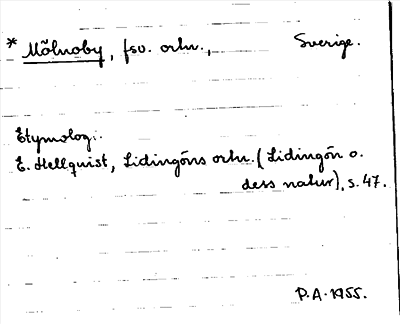 * Mölnoby, fsv. ortn., Sverige.
Etymolog.:
E. Hellquist, Lidingöns ortn. (Lidingön o.
dess natur), s. 47.
P.A. 1955.